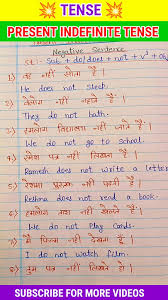 TENSE
PRESENT INDEFINITE TENSE
Negative Sentence
Sub + do/does + not + V¹ + Obj
1) वह नहीं सोता है।
He does not sleep.
2) वे लोग नहीं नहाते हैं।
They do not bath.
3) हमलोग विद्यालय नहीं जाते हैं।
We do not go to school.
4) रमेश पत्र नहीं लिखता है।
Ramesh does not write a letter
5) रेशमा पुस्तक नहीं पढ़ती है।
Reshma does not read a book.
6) हमलोग ताश नहीं खेलते हैं।
We do not Play Cards.
7) मैं फिल्म नहीं देखता हूँ।
I do not watch film.
8) तुम पत्र नहीं लिखते हो।
SUBSCRIBE FOR MORE VIDEOS